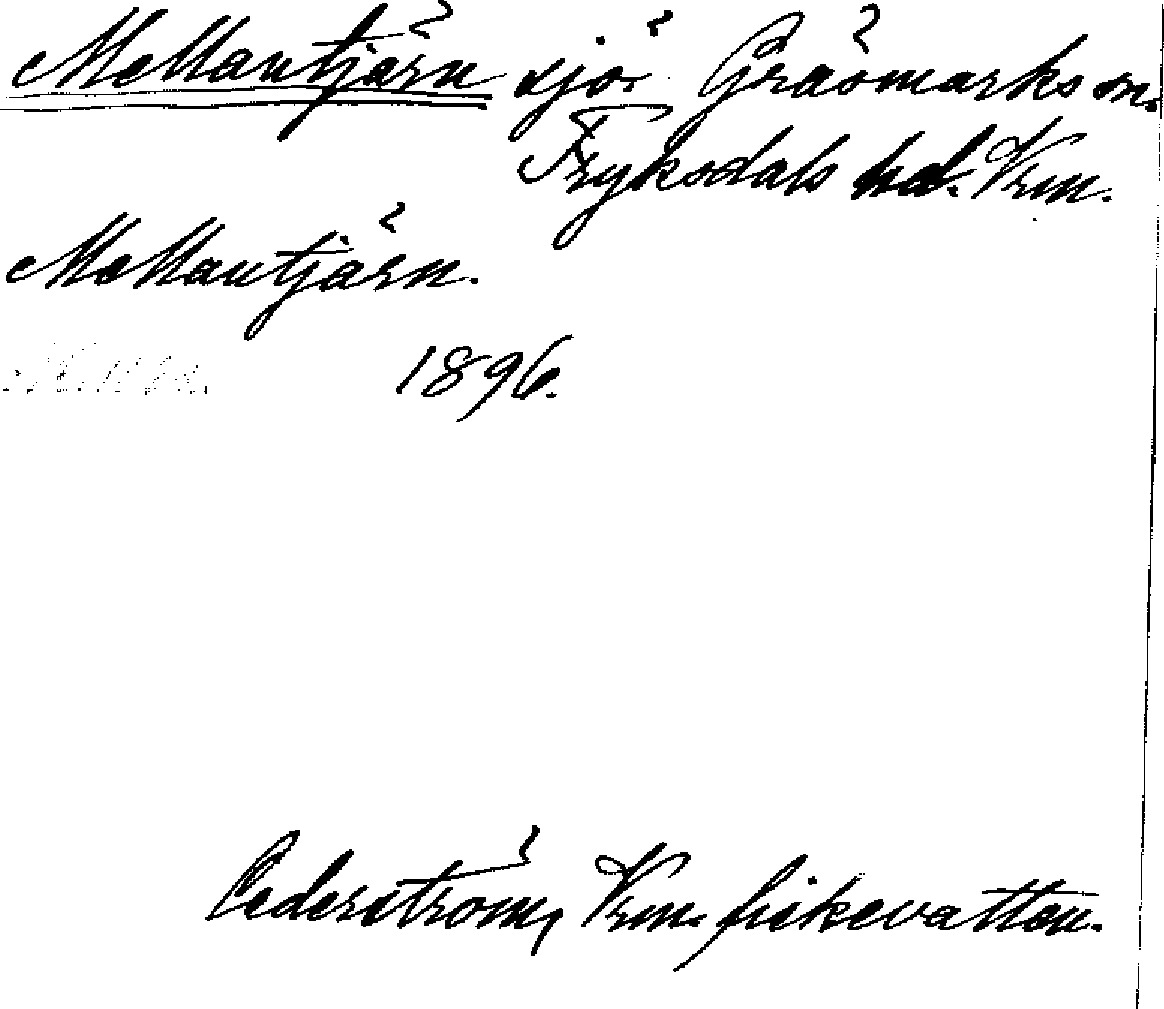 Mellantjärn sjö Gräsmarks sn.
Fryksdals hd. Vrm.
Mellantjärn.
1896.
Cederström, Vrm. fiskevatten.